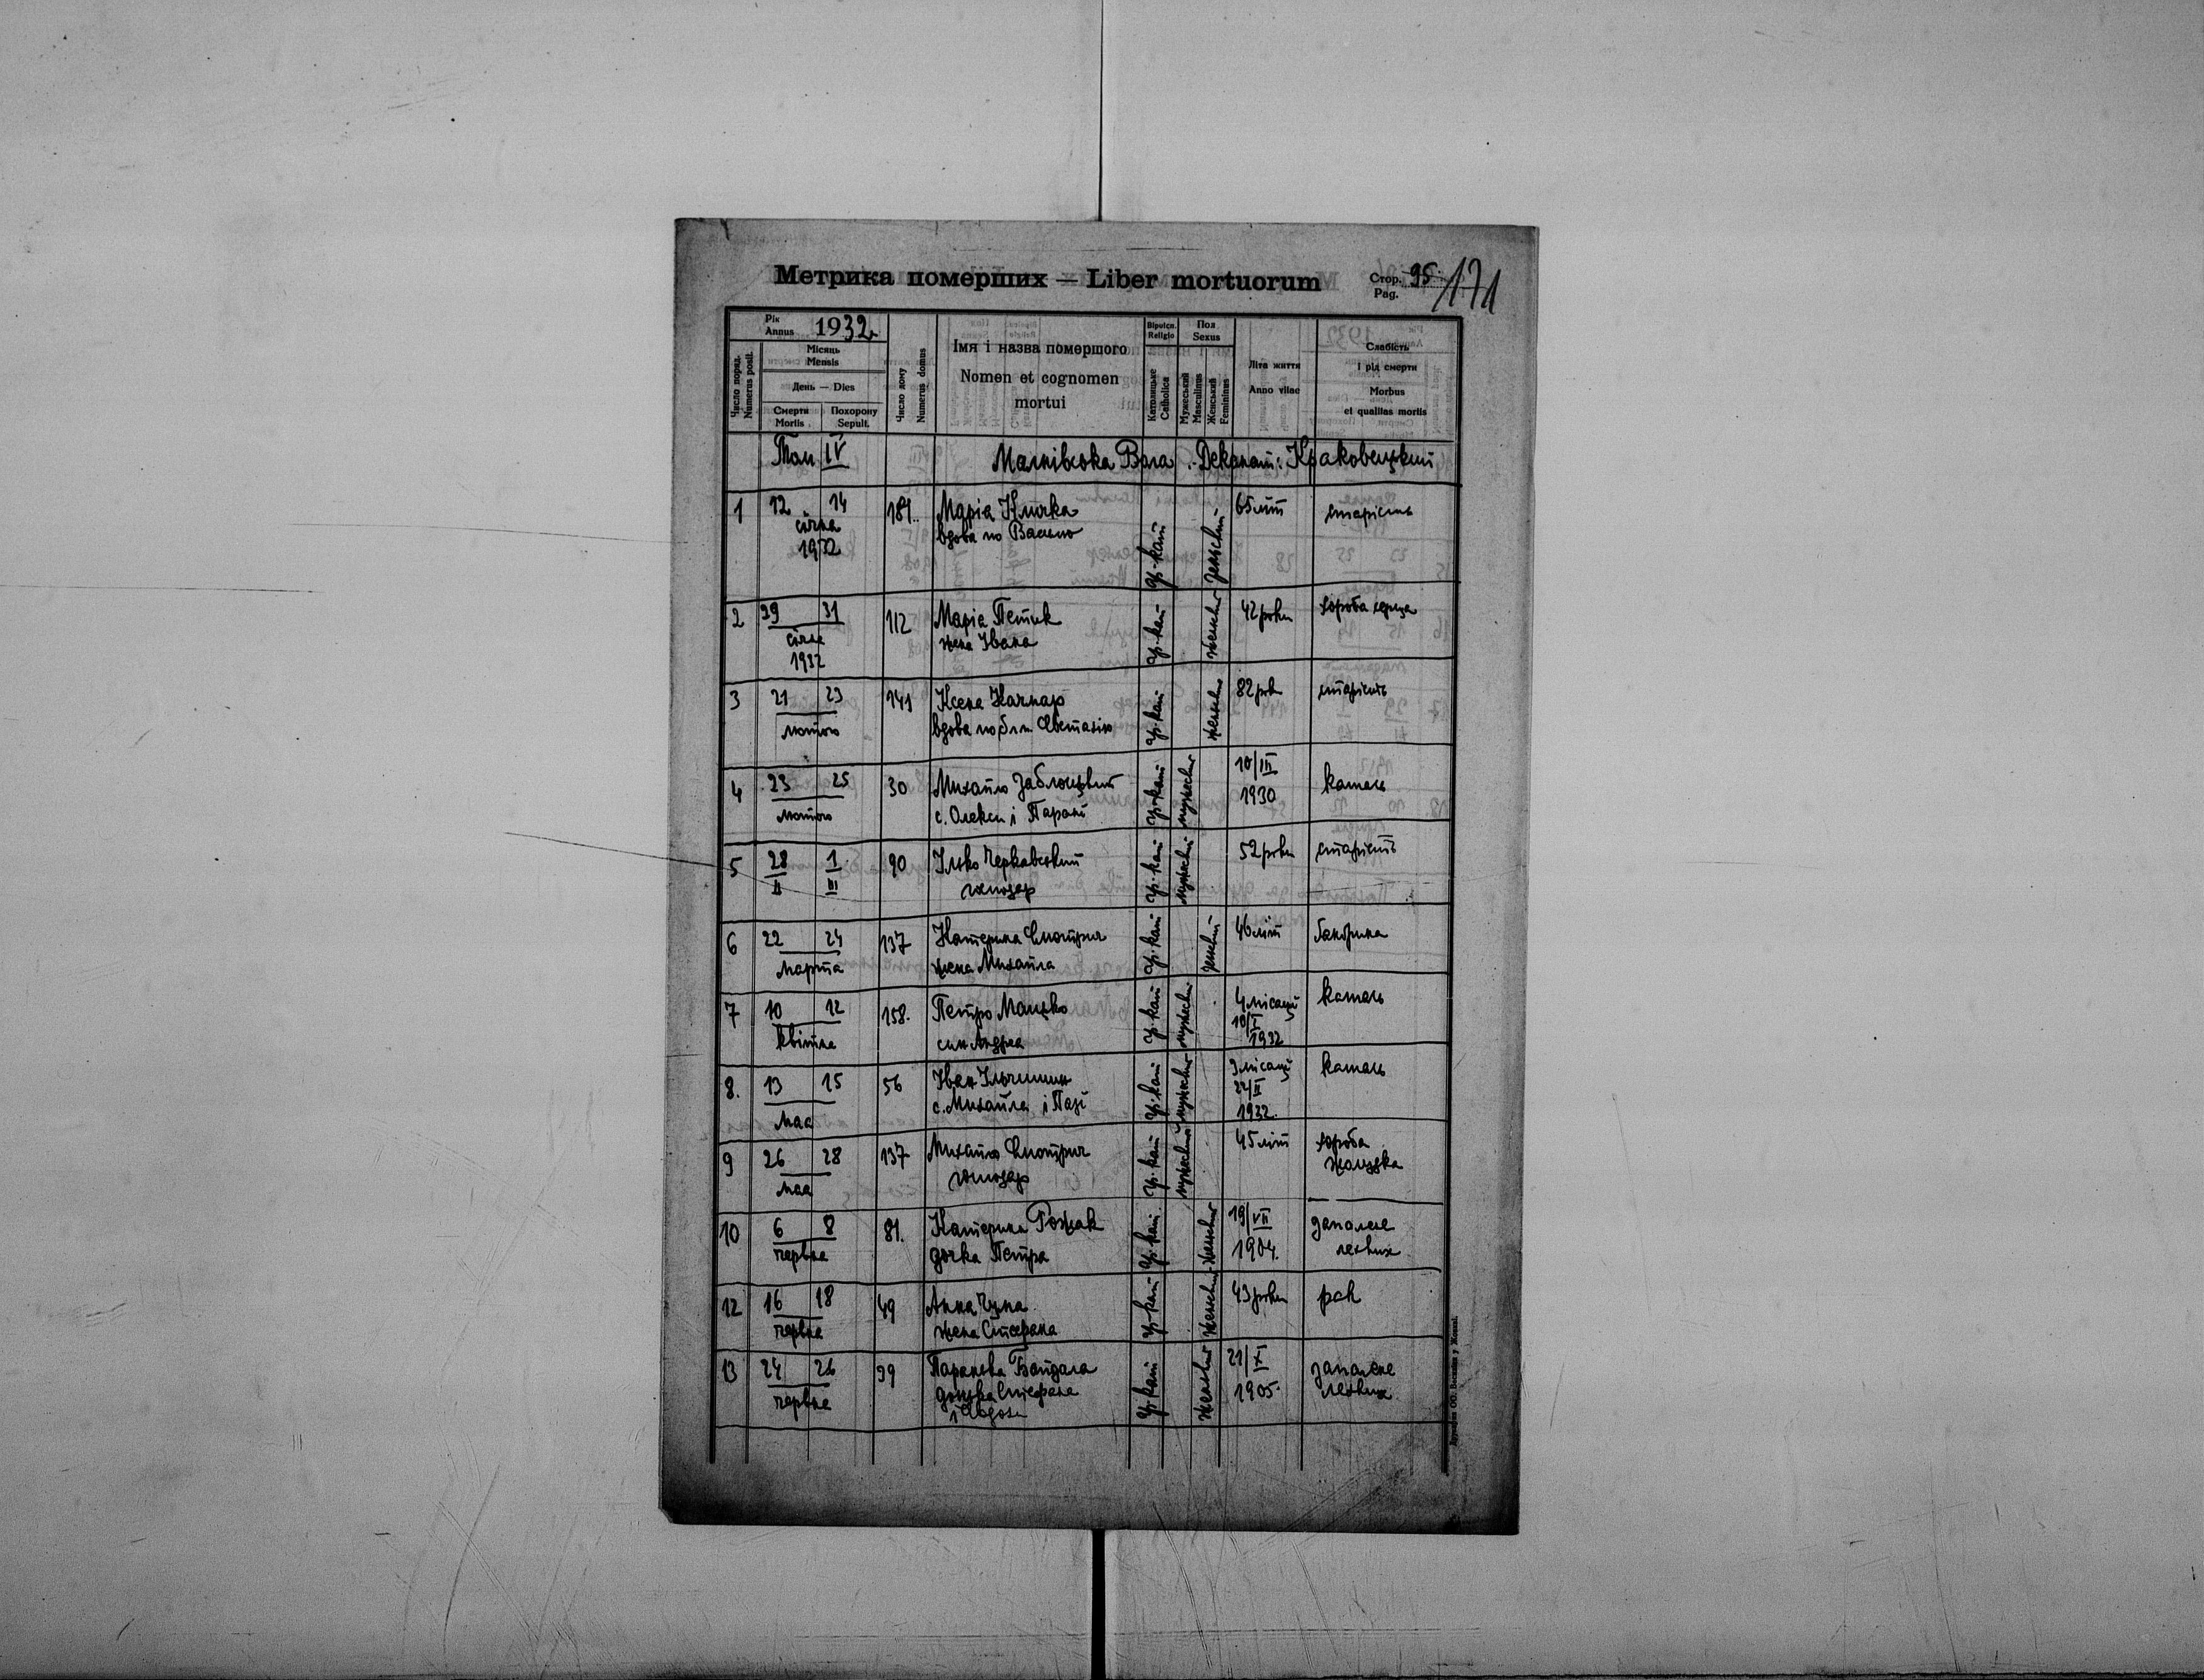 Метрика померших — Liber mortuorum
Стор. 95
Pag.
171
Рік
Annus 1932
Число поряд.
Numerus posit.
Місяць
Mensis
День — Dies
Смерти
Mortis
Похорону
Sepult.
Число дому
Numerus domus
Імя і назва помершого
Nomen et cognomen
mortui
Віроісп.
Religio
Католицьке
Catholica
Пол
Sexus
Мужеський
Masculinus
Женський
Femininus
Літа життя
Anno vitae
Слабість
і рід смерти
Morbus
et qualitas mortis
Том IV Малнівська Воля .- Деканат: Краковецький
1 12 14 січня 1932 181. Марія Кличка гр.-кат. 65 літ старість
вдова по Василю
2 29 31 січня 1932 112 Марія Петик гр.-кат. 42 роки хороба серця
жена Івана
3 21 23 лютого 141 Ксеня Качмар гр.-кат. 82 рок. старість
вдова по бл.п. Євстахію
4 23 25 лютого 30 Михайло Заблоцький гр.-кат. 10/III 1930 кашель
с. Олекси і Парані
5 28 II 1 III 90 Ілько Черкавський гр.-кат. 52 роки старість
господар
6 22 24 марта 137 Катерина гр.-кат. 46 літ
жена Михайла
7 10 12 квітня 158. Петро Мацько гр.-кат. 4 місяці 10/I 1932 кашель
син Андрея
8. 13 15 мая 56 Іван Ільчишин гр.-кат. 3 місяці 22/II 1932. кашель
с. Михайла і Пазі
9 26 28 мая 137 Михайло гр.-кат. 45 літ хороба жолудка
господар
10 6 8 червня 81. Катерина Рожак гр.-кат. 19/VII 1904. запалене легких
дочка Петра
12 16 18 червня 49 Анна Чупа гр.-кат. 43 роки рак
жена Стефана
13 24 26 червня 99 Параскева Байдала гр.-кат. 21/XI 1905. запалене легких
донька Стефана